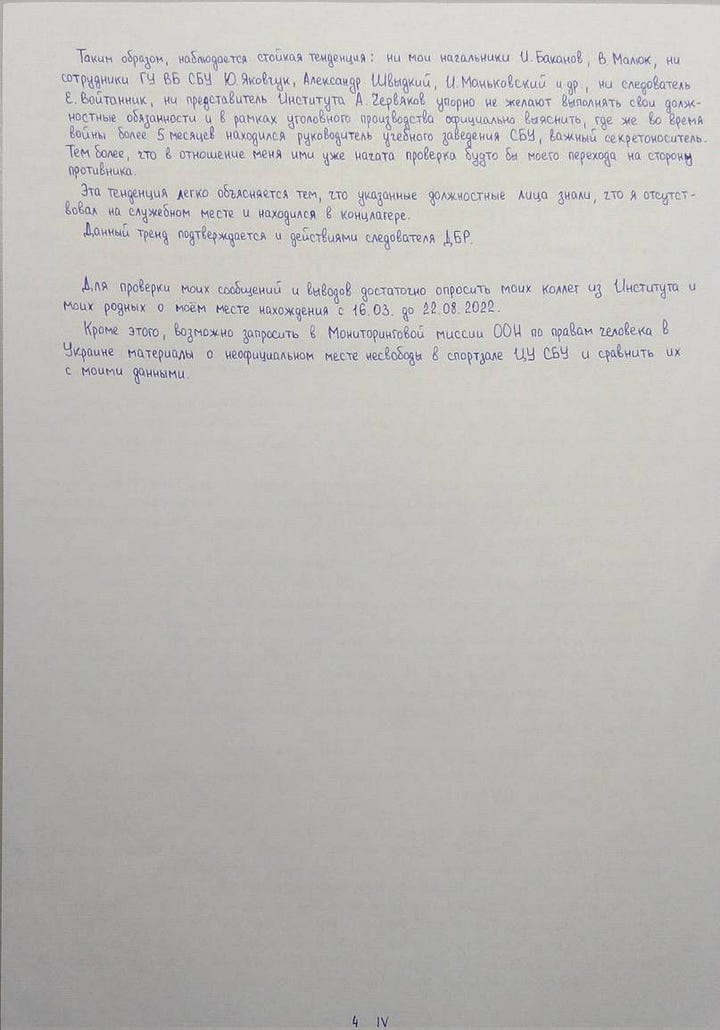 Таким образом, наблюдается стойкая тенденция: ни мои начальники И. Баканов, В. Малюк, ни
сотрудники ГУ ВБ СБУ Ю. Яковчук, Александр Швыдкий, И. Маньковский и др., ни следователь
Е. Войтанник, ни представитель Института А. Червяков упорно не желают выполнять свои долж-
ностные обязанности и в рамках уголовного производства официально выяснить, где же во время
войны более 5 месяцев находился руководитель учебного заведения СБУ, важный секретоноситель.
Тем более, что в отношение меня ими уже начата проверка будто бы моего перехода на сторону
противника.
Эта тенденция легко объясняется тем, что указанные должностные лица знали, что я отсутст-
вовал на служебном месте и находился в концлагере.
Данный тренд подтверждается и действиями следователя ДБР.
Для проверки моих сообщений и выводов достаточно опросить моих коллег из Института и
моих родных о моём месте нахождения с 16.03. до 22.08.2022.
Кроме этого, возможно запросить в Мониторинговой миссии ООН по правам человека в
Украине материалы о неофициальном месте несвободы в спортзале ЦУ СБУ и сравнить их
с моими данными.
4 IV